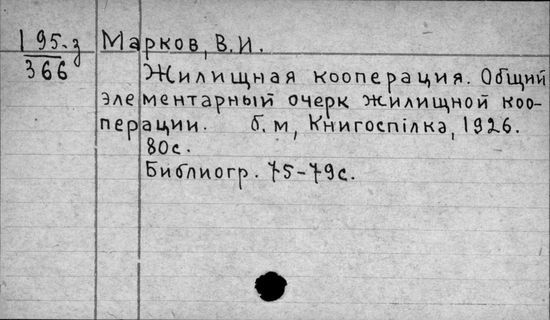 195-з Марков, В.И.
366
Жилищная кооперация. Общий
элементарный очерк жилищной коо-
перации. б.м, Книгоспілка, 1926.
80с.
Библиогр. 75-79с.